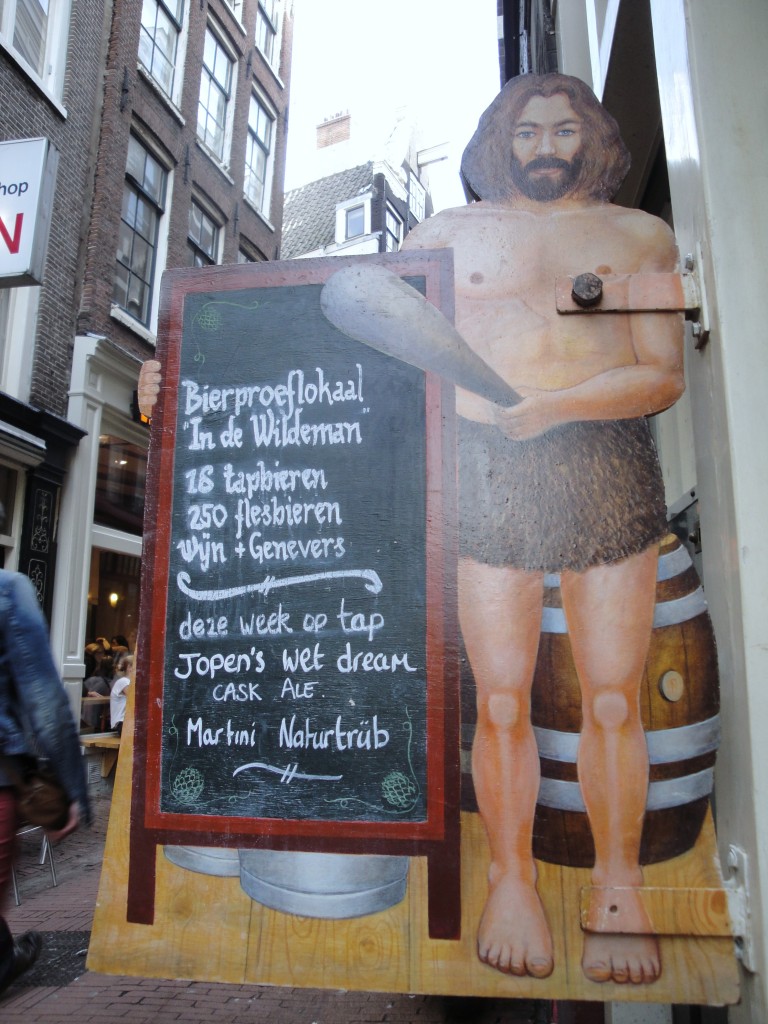 hop
N
Bierproeflokaal
"In de Wildeman"
18 tapbieren
250 flesbieren
Wijn + Genevers
deze week op tap
Jopen's wet dream
CASK ALE.
Martini Naturtrüb